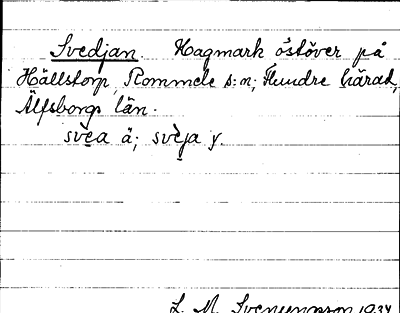 Svedjan. Hagmark östöver på
Hällstorp, Rommele s:n; Flundre härad,
Älfsborgs län.
svea, ä; svèja y.
L. M. Svenungsson 1934